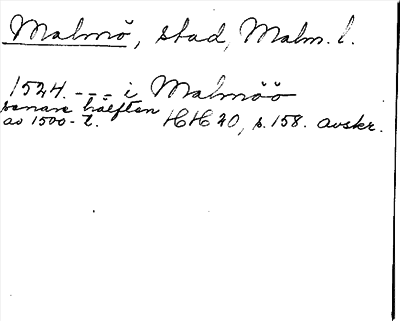 Malmö, stad, Malm. l.
1524. --- i Malmöö
senare hälften
av 1500-t. HH 20, s. 158. avskr.